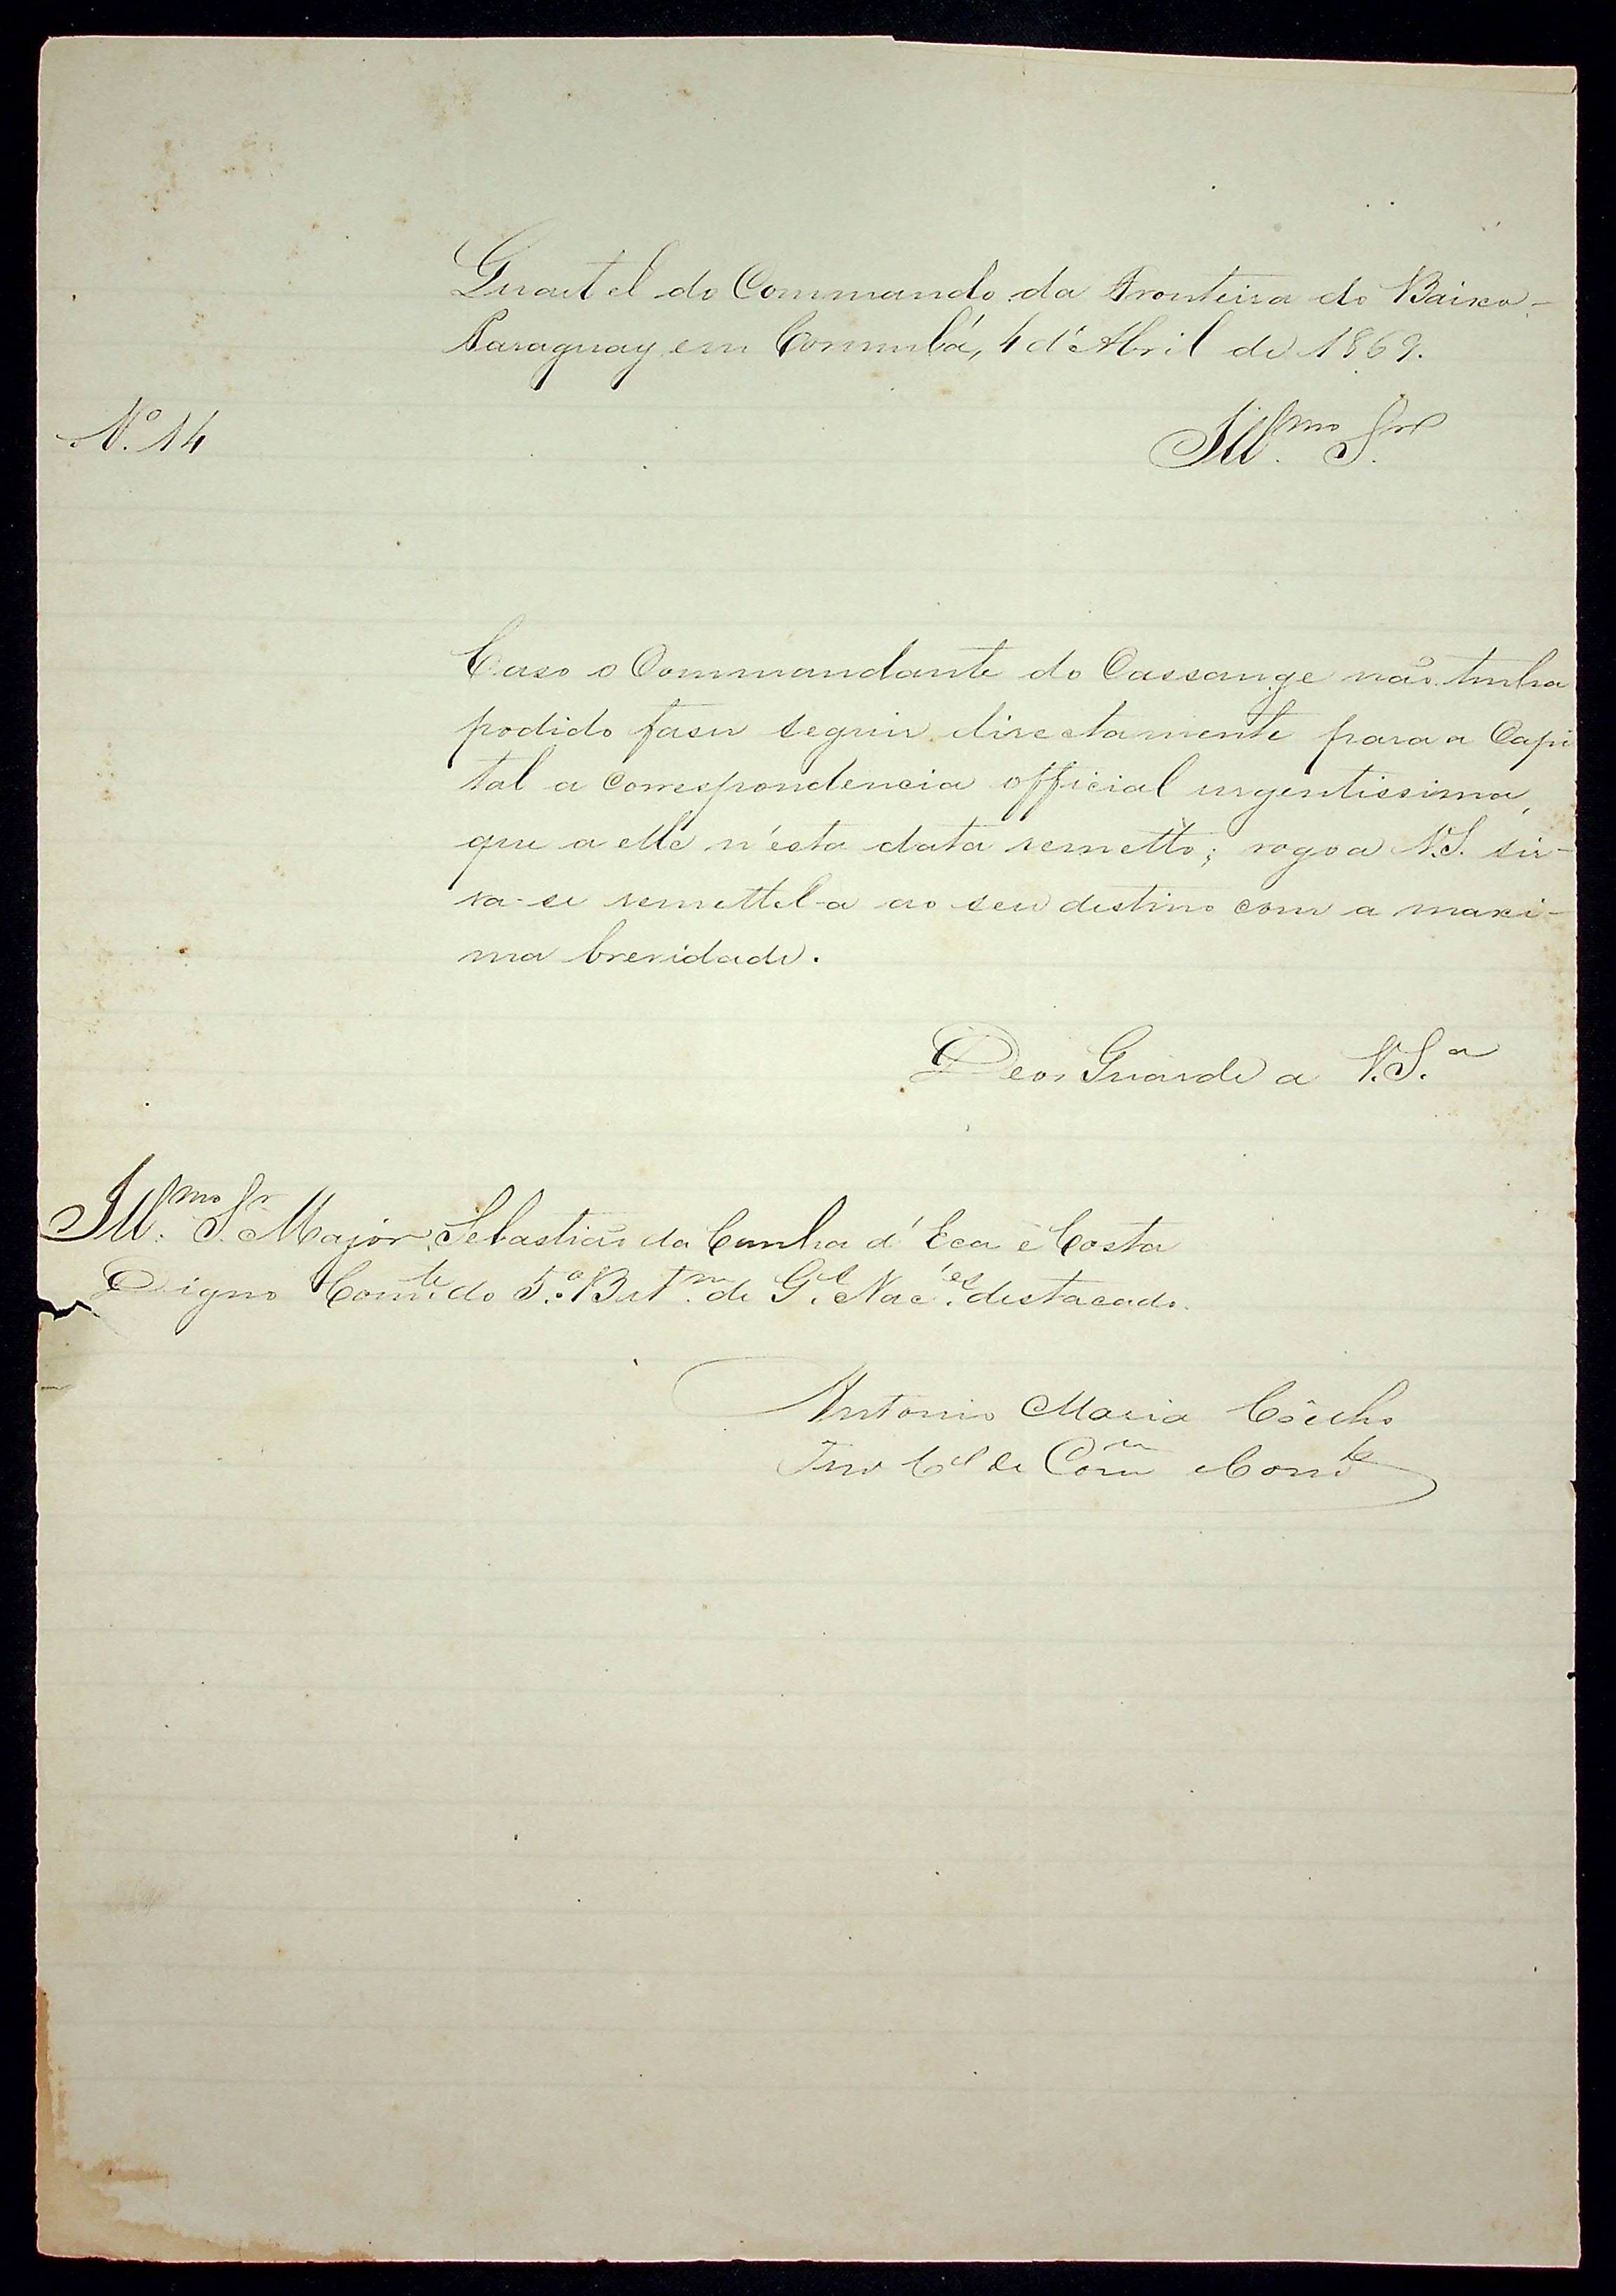 Quartel do Commando da Fronteira do Baixo-
Paraguay em Corumbá, 4 d'Abril de 1869.
Nº. 14
Ill.mo S.or
Caso o Commandante do Cassange não tenha
podido faser seguir directamente para a Capi
tal a correspondencia official urgentissima,
que a elle n'esta data remetto; rogo a V.S. sir-
va-se remettel-a ao seu destino com a maxi-
ma brevidade.
Deos Guarde a V.S.a
Ill.mo S.r Major Sebastião da Cunha d'Eça e Costa
Digno Com.te do 5.º Bat.m de G.s Nac.es destacado.
Antonio Maria Coêlho
Tne Cel de Com.m Comd.te